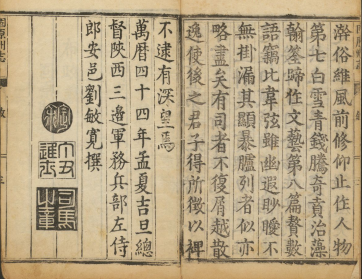 漸俗維風前修仰止人物
第七白雪青錢騰奇賁治藻
翰筌蹄性文藝第八篇贅數
語竊比韋弦雖幽遐眇曖不
無掛漏其顯暴臚列者似亦
略盡矣有司者不復屑越散
逸使後之君子得所徵以裨
不逮有深望焉
萬曆四十四年孟夏吉旦總
督陝西三邊軍務兵部左侍
郎安邑劉敏寬撰
丁丑進士
司馬之章